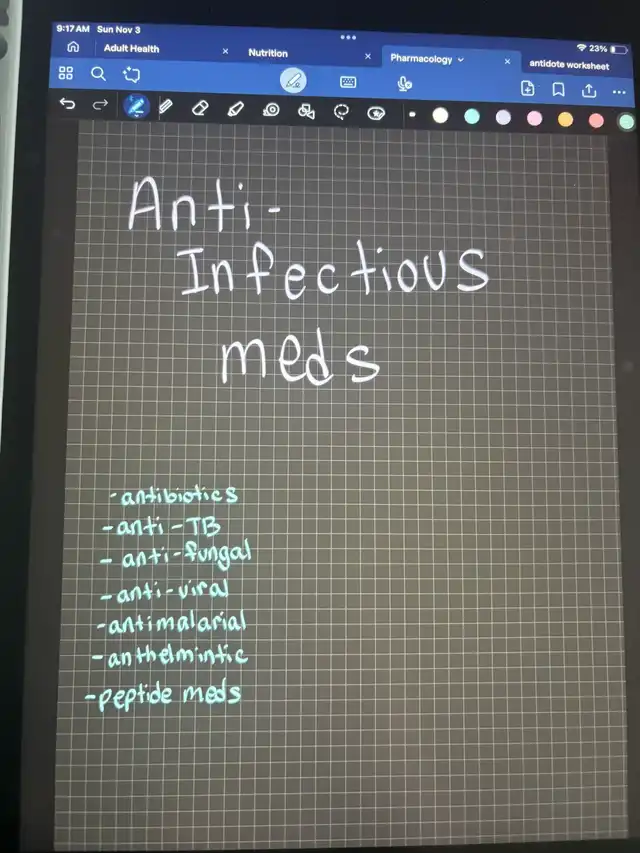 9:17 AM Sun Nov 3
23%
Adult Health
Nutrition
Pharmacology
antidote worksheet
Anti-
Infectious
meds
- antibiotics
- anti-TB
- anti-fungal
- anti-viral
- antimalarial
- anthelmintic
- peptide meds